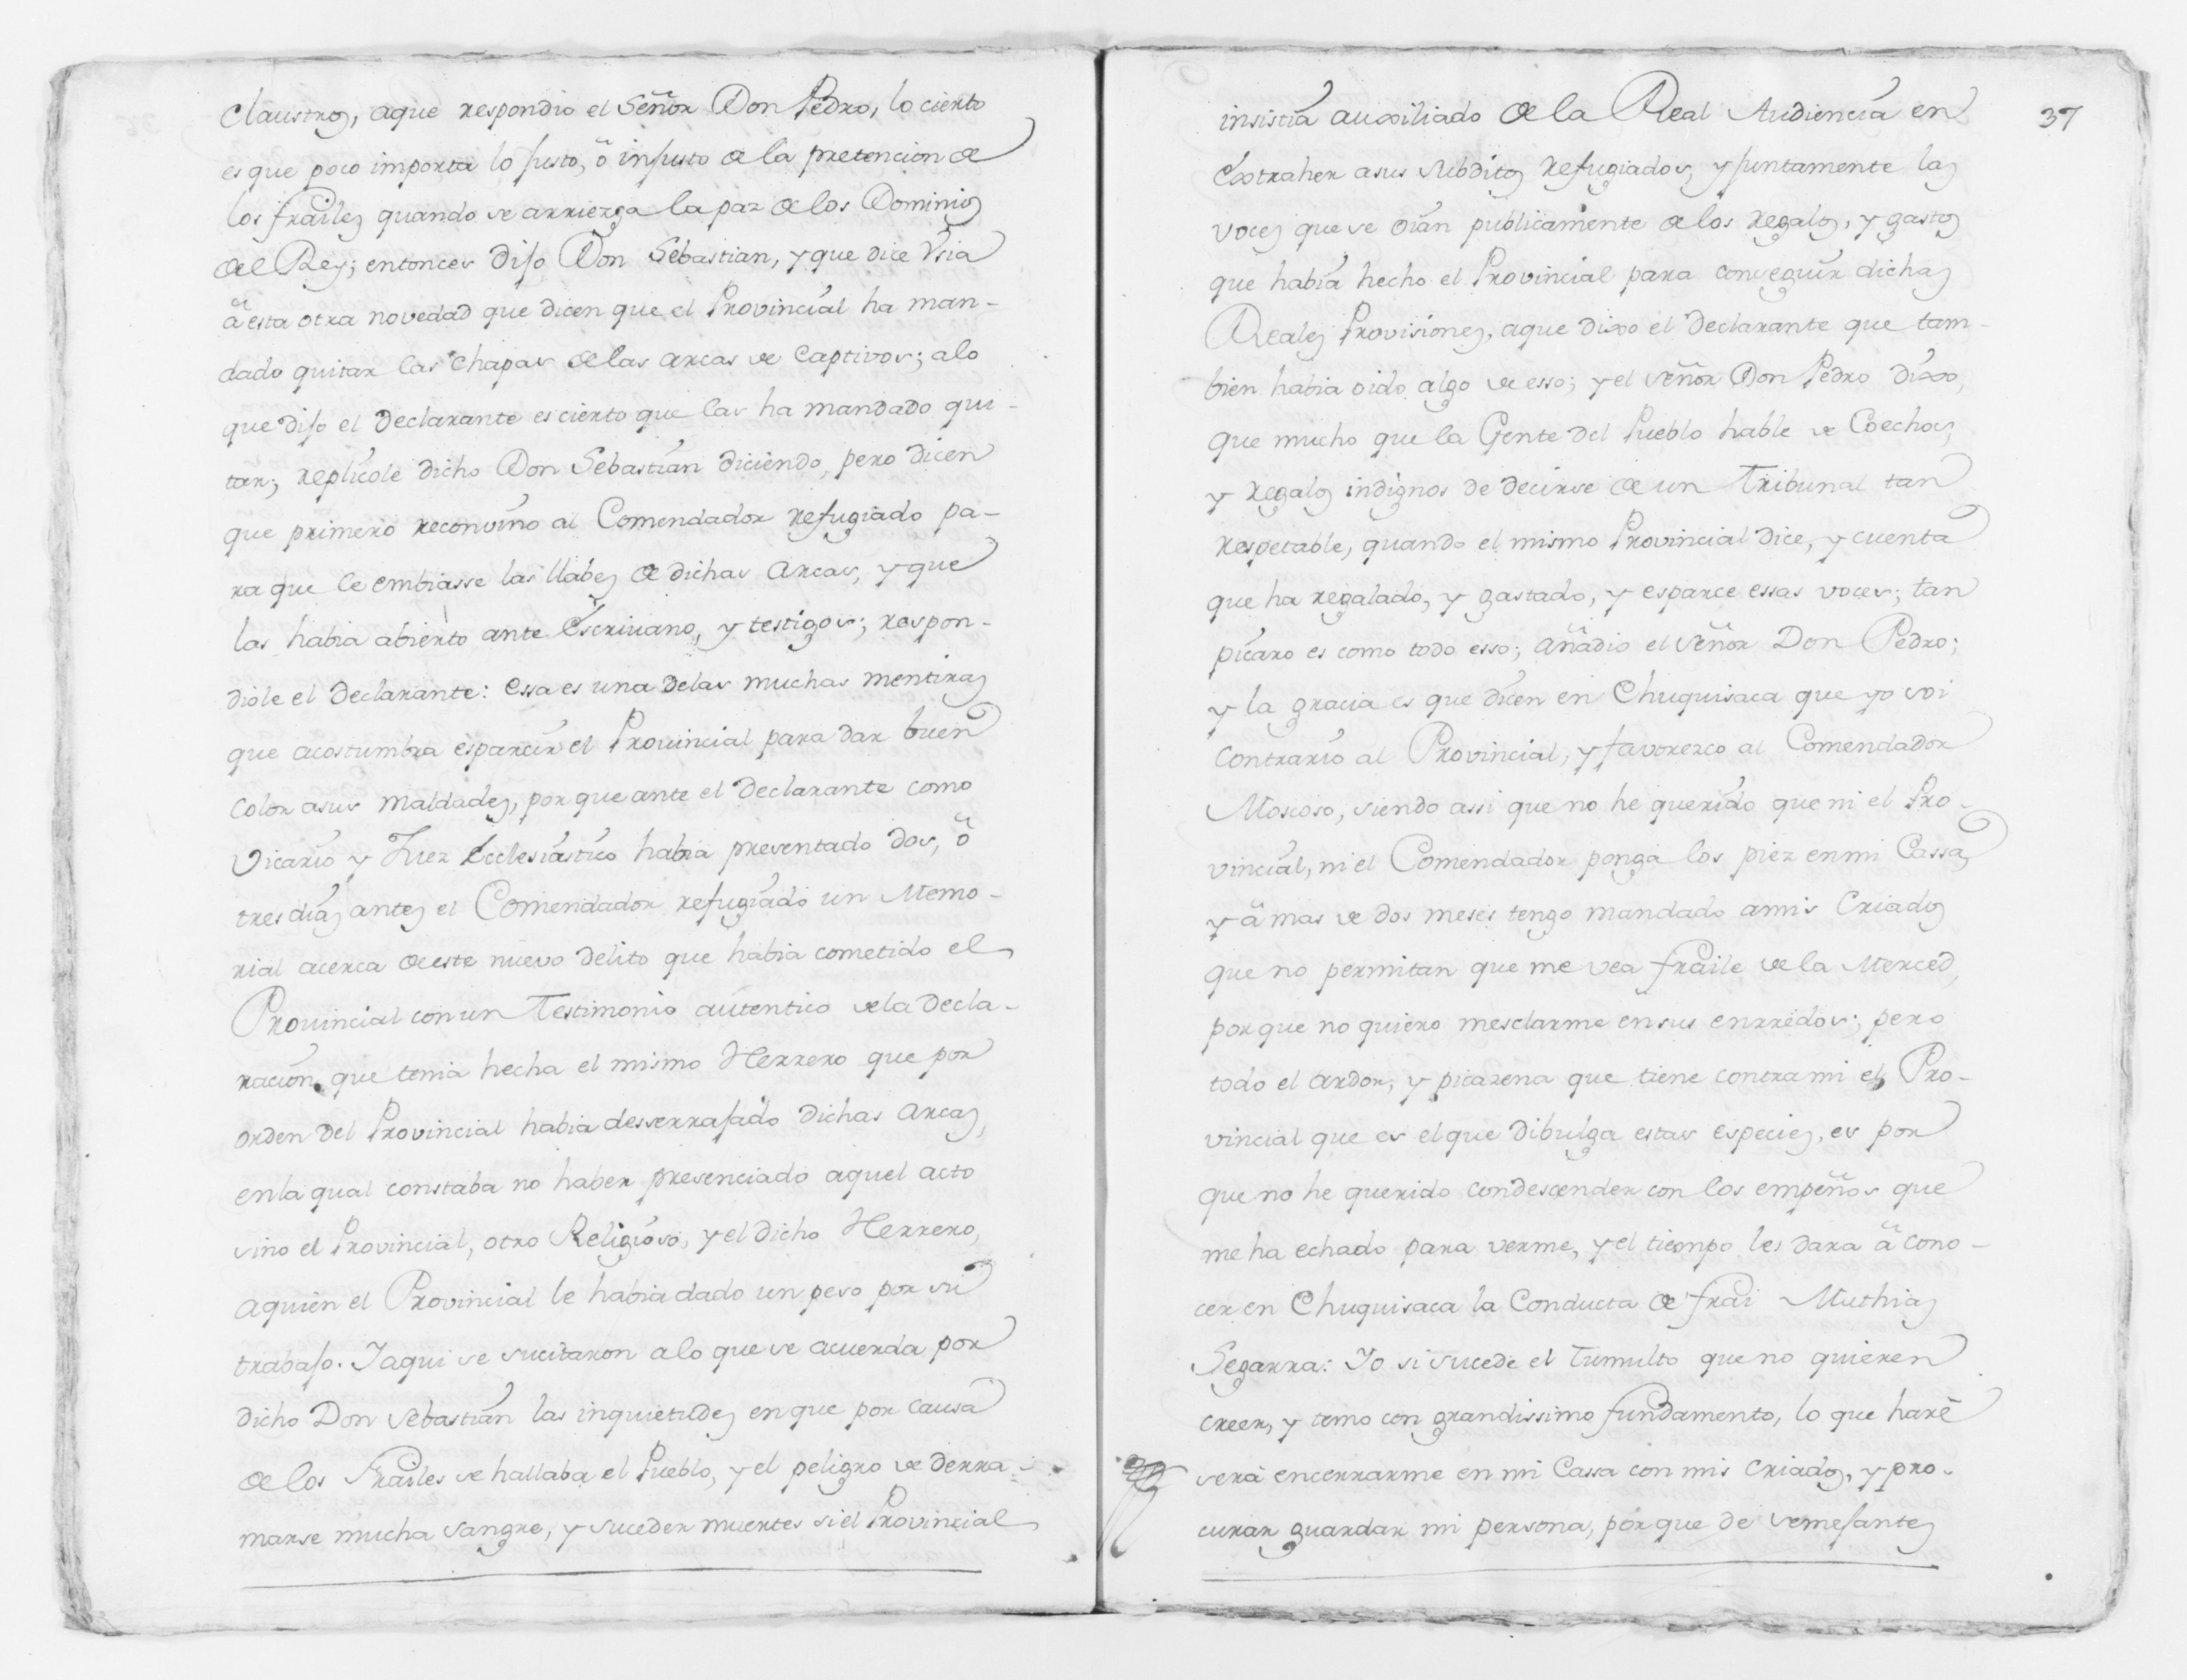 Claustros, aque respondio el Señor Don Pedro, lo cierto
es que poco importa lo justo, ô injusto de la pretencion de
los frailes quando se arriezga la paz de los Dominios
del Rey; entonces dijo Don Sebastian, y que dice Vsia
â esta otra novedad que dicen que el Provincial ha man-
dado quitar las Chapas de las arcas de Captivos; alo
que dijo el Declarante es cierto que las ha mandado qui-
tar; replicole dicho Don Sebastian diciendo, pero dicen
que primero reconvino al Comendador refugiado pa-
ra que le embiasse las llabes de dichas arcas, y que
las habia abierto ante Escrivano, y testigos; respon-
diole el Declarante: essa es una de las muchas mentiras
que acostumbra esparcir el Provincial para dar buen
color asus maldades, por que ante el Declarante como
Vicario y Juez Ecclesiastico habia presentado dos, ô
tres dias antes el Comendador refugiado un Memo-
rial acerca de este nuevo delito que habia cometido el
Provincial con un Testimonio autentico de la decla-
racion que tenia hecha el mismo Herrero que por
orden del Provincial habia desserrajado dichas arcas,
en la qual constaba no haber presenciado aquel acto
sino el Provincial, otro Religioso, y el dicho Herrero,
aquien el Provincial le habia dado un peso por su
trabajo. Iaqui se sucitaron alo que se acuerda por
dicho Don Sebastian las inquietudes en que por causa
de los Frailes se hallaba el Pueblo, y el peligro de derra-
marse mucha sangre, y suceder muertes si el Provincial
37
insistia auxiliado de la Real Audiencia en
Extraher asus subditos refugiados, y juntamente las
voces que se oian publicamente de los regalos, y gastos
que habia hecho el Provincial para conseguir dichas
Reales Provisiones, aque dixo el Declarante que tam-
bien habia oido algo de esso; y el Señor Don Pedro dixo,
que mucho que la Gente del Pueblo hable de Coechos,
y regalos indignos de decirse de un Tribunal tan
respetable, quando el mismo Provincial dice, y cuenta
que ha regalado, y gastado, y esparce essas voces; tan
picaro es como todo esso; añadio el Señor Don Pedro;
y la gracia es que dicen en Chuquisaca que yo soi
contrario al Provincial, y favorezco al Comendador
Moscoso, siendo assi que no he querido que ni el Pro-
vincial, ni el Comendador ponga los piez en mi Cassa,
y â mas de dos meses tengo mandado a mis Criados
que no permitan que me vea fraile de la Merced,
porque no quiero mesclarme en sus enrredos; pero
todo el ardor, y picazena que tiene contra mi el Pro-
vincial que es el que dibulga estas especies, es por
que no he querido condescender con los empeños que
me ha echado para verme, y el tiempo les dara â cono-
cer en Chuquisaca la Conducta de frai Mathias
Segarra: Io si sucede el tumulto que no quieren
creer, y temo con grandissimo fundamento, lo que harê
serâ encerrarme en mi Cassa con mis Criados, y pro-
curar guardar mi persona, porque de semejantes